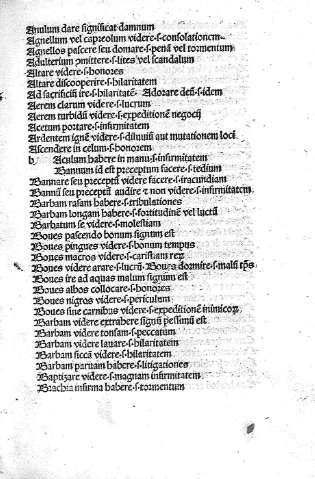 Anulum dare significat damnum
Agnellum vel capreolum videre·s·consolationem
Agnellos pascere seu domare·s·penā vel tormentum
Adulterium ꝯmittere·s·lites vel scandalum
Altare videre·s·honores
Altare discooperire·s·hilaritatem
Ad sacrificiū ire·s·hilaritatē· Adorare deū·s·idem
Aerem clarum videre·s·lucrum
Aerem turbidū videre·s·expeditionē negocij
Acetum portare·s·infirmitatem
Ardentem ignē videre·s·diluuiū aut mutationem loci
Ascendere in celum·s·honorem
b· Aculum habere in manu·s·infirmitatem
Bannum id est preceptum facere·s·tedium
Bannare seu preceptū videre facere·s·iracundiam
Bannū seu preceptū audire ⁊ non videre·s·infirmitatem
Barbam rasam habere·s·tribulationes
Barbam longam habere·s·fortitudinē vel luctū
Barbatum se videre·s·molestiam
Boues pascendo bonum signum est
Boues pingues videre·s·bonum tempus
Boues macros videre·s·caristiam rerum
Boues videre arare·s·lucrū· Boues dormire·s·malū tp̄s
Boues ire ad aquas malum signum est
Boues albos collocare·s·honores
Boues nigros videre·s·periculum
Boues sine cornibus videre·s·expeditionē inimicorum
Barbam videre extrahere signū pessimū est
Barbam videre tonsam·s·peccatum
Barbam videre lauare·s·hilaritatem
Barbam siccā videre·s·hilaritatem
Barbam paruam habere·s·litigationes
Baptizare videre·s·magnam infirmitatem
Brachia infirma habere·s·tormentum